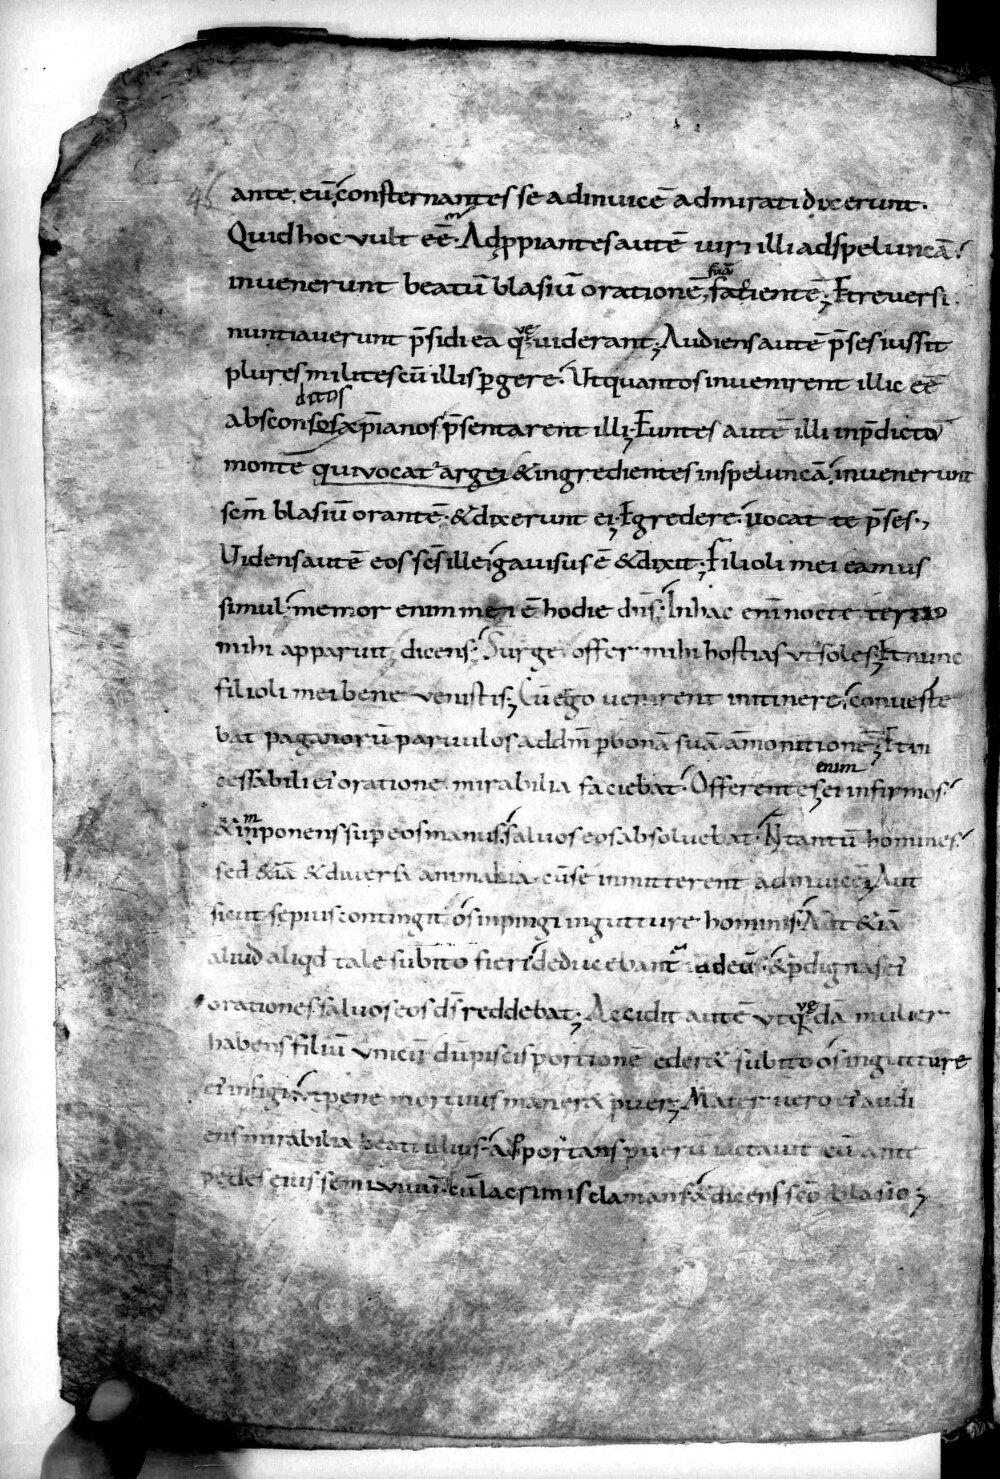 46 ante eũ consternantes se adinuicẽ admirati dixerunt.
Quid hoc vult eẽ. Adp̱piantes m autẽ uiri illi ad speluncã.
inuenerunt beatũ blasiũ orationẽ suã facientẽ; Et reversi
nuntiaverunt p̃sidi ea q̨ ve uiderant; Audiens autẽ p̃ses iussit
plures milites cũ illis ꝑgere. Ut quantos invenirent illic eẽ
absconsos ditos xp̃ianos p̃sentarent illi; Euntes autẽ illi in p̃dicto
monte qui vocat᷑ argei & ingredientes in speluncã. invenerunt
sc̃m blasiũ orantẽ. & dixerunt ei; Egredere. vocat te p̃ses.,
Uidens autẽ eos sc̃s ille. gauisus ẽ & dixit; Filioli mei eamus
simul. memor enim mei ẽ hodie dñs. In hac enĩ nocte tertio
mihi apparuit dicens. Surge. offer mihi hostias ut soles; Et nunc
filioli mei bene venistis; Cũ ego uenirent in itinere. conueste
bat paganorũ parvulos ad dñm ꝑ bonã suã am̃onitionẽ; Et in
cessabili ei oratione mirabilia faciebat. Offerentes enim ei infirmos.
& im ponens sup̱ eos manus. salvos eos absoluebat. N̄ tantũ homines.
sed &iã & diversa animalia. cũ se inmitterent adinuicẽ; Aut
sicut sepius contingit os inpingi in gutture hominis. Aut &iã
aliud aliqd̃ tale subito fieri. deducebant᷑ ad eũ. & p̱ dignas ei
orationes salvos eos d̃s reddebat; Accidit autẽ vt q̨ ve dã mulier
habens filiũ vnicũ dũ piscis portionẽ eder& subito os in gutture
ei infigi. Et pene mortuus maner& puer; Mater uero ei audi
ens mirabilia beati illius. asportans puerũ iactauit eũ ante
pedes eius semivivũ. cũ lacrimis clamans. & dicens sc̃o blasio;